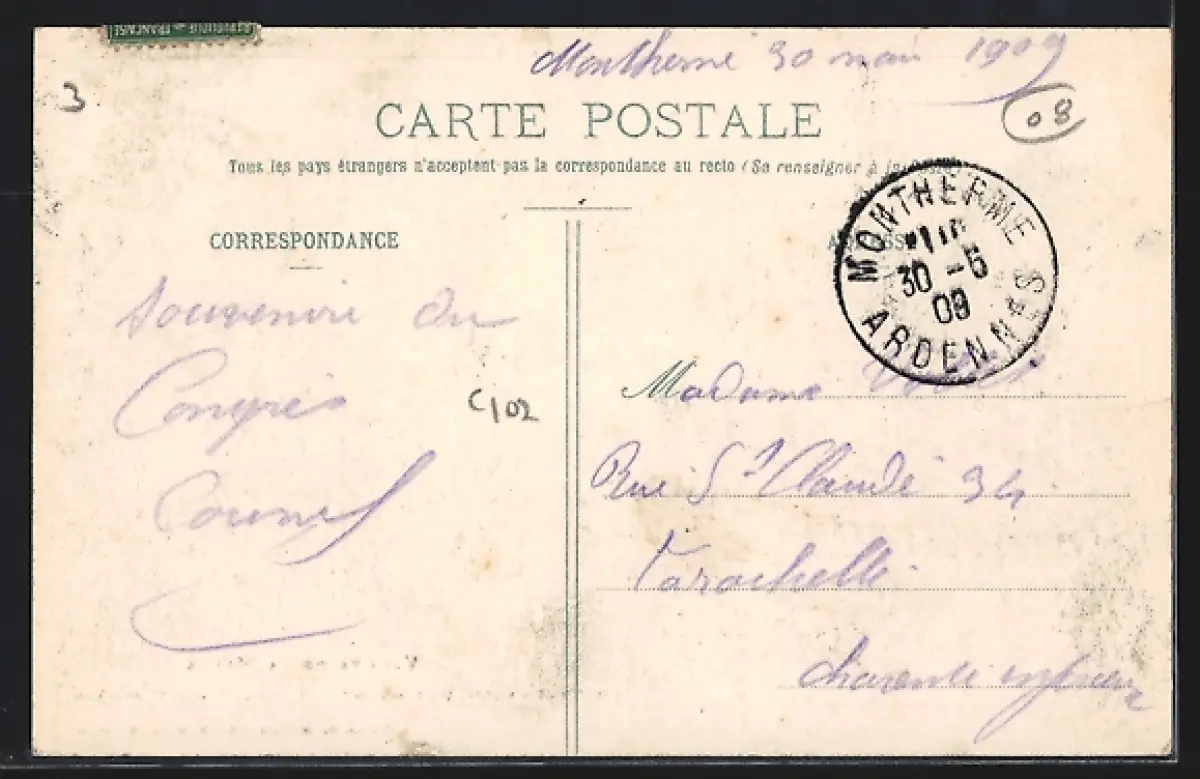 REPUBLIQUE FRANCAISE
Monthermé 30 mai 1909
3
CARTE POSTALE
08
Tous les pays étrangers n'acceptent pas la correspondance au recto (Se renseigner à la
MONTHERME
30 -5
09
ARDENNES
CORRESPONDANCE
Souvenire du
Congrès
C102
Madame
Rue St Claude 34
Larochelle
charente inferieur